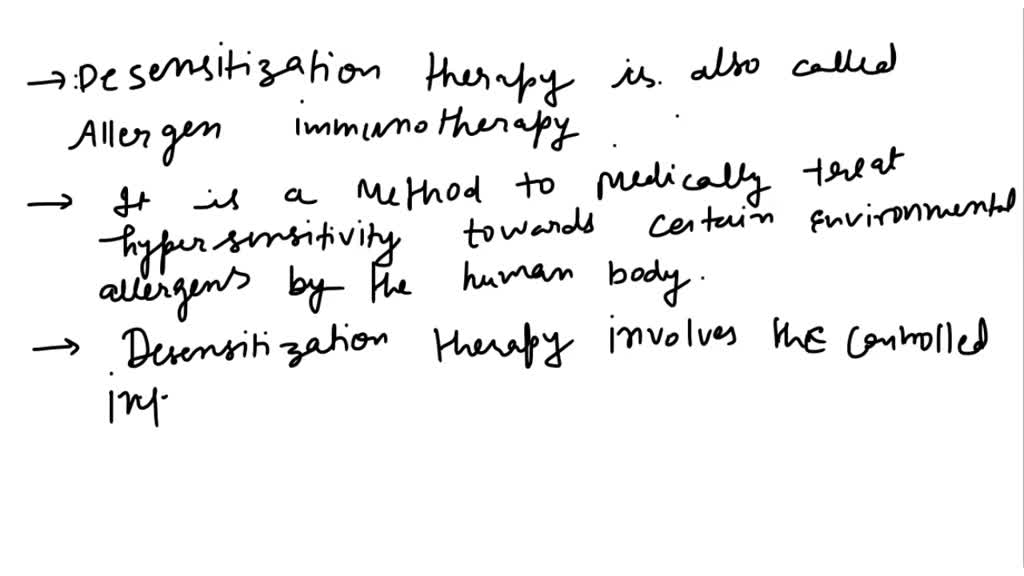 → Desensitization therapy is also called
Allergen immunotherapy.
→ It is a Method to medically treat
hypersensitivity towards certain Environmental
allergens by the human body.
→ Desensitization therapy involves the controlled